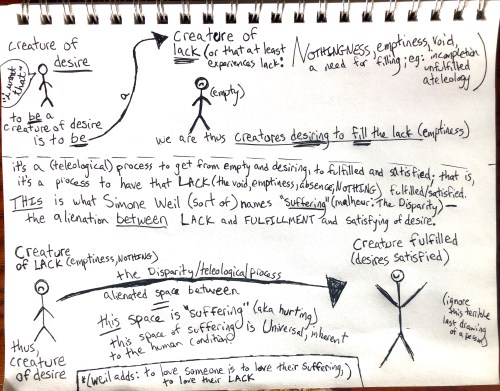 creature of
desire
"I want
that"
to be a
creature of desire
is to be
Creature of
lack (or that at least
experiences lack:
NOTHINGNESS, emptiness, void,
a need for filling; eg: incompletion
unfulfilled
ateleology)
(empty)
we are thus creatures desiring to fill the lack (emptiness)
it's a (teleological) process to get from empty and desiring, to fulfilled and satisfied; that is,
it's a process to have that LACK (the void, emptiness, absence, NOTHING) fulfilled/satisfied.
THIS is what Simone Weil (sort of) names "suffering" (malheur: The Disparity) —
the alienation between LACK and FULFILLMENT and satisfying of desire.
Creature
of LACK (emptiness, NOTHING)
the Disparity/teleological process
alienated space between
this space is "suffering" (aka hurting)
this space of suffering is Universal, inherent
to the human condition
thus,
creature
of desire
Creature fulfilled
(desires satisfied)
(ignore
this terrible
last drawing
of a person)
*(Weil adds: to love someone is to love their suffering,
to love their LACK